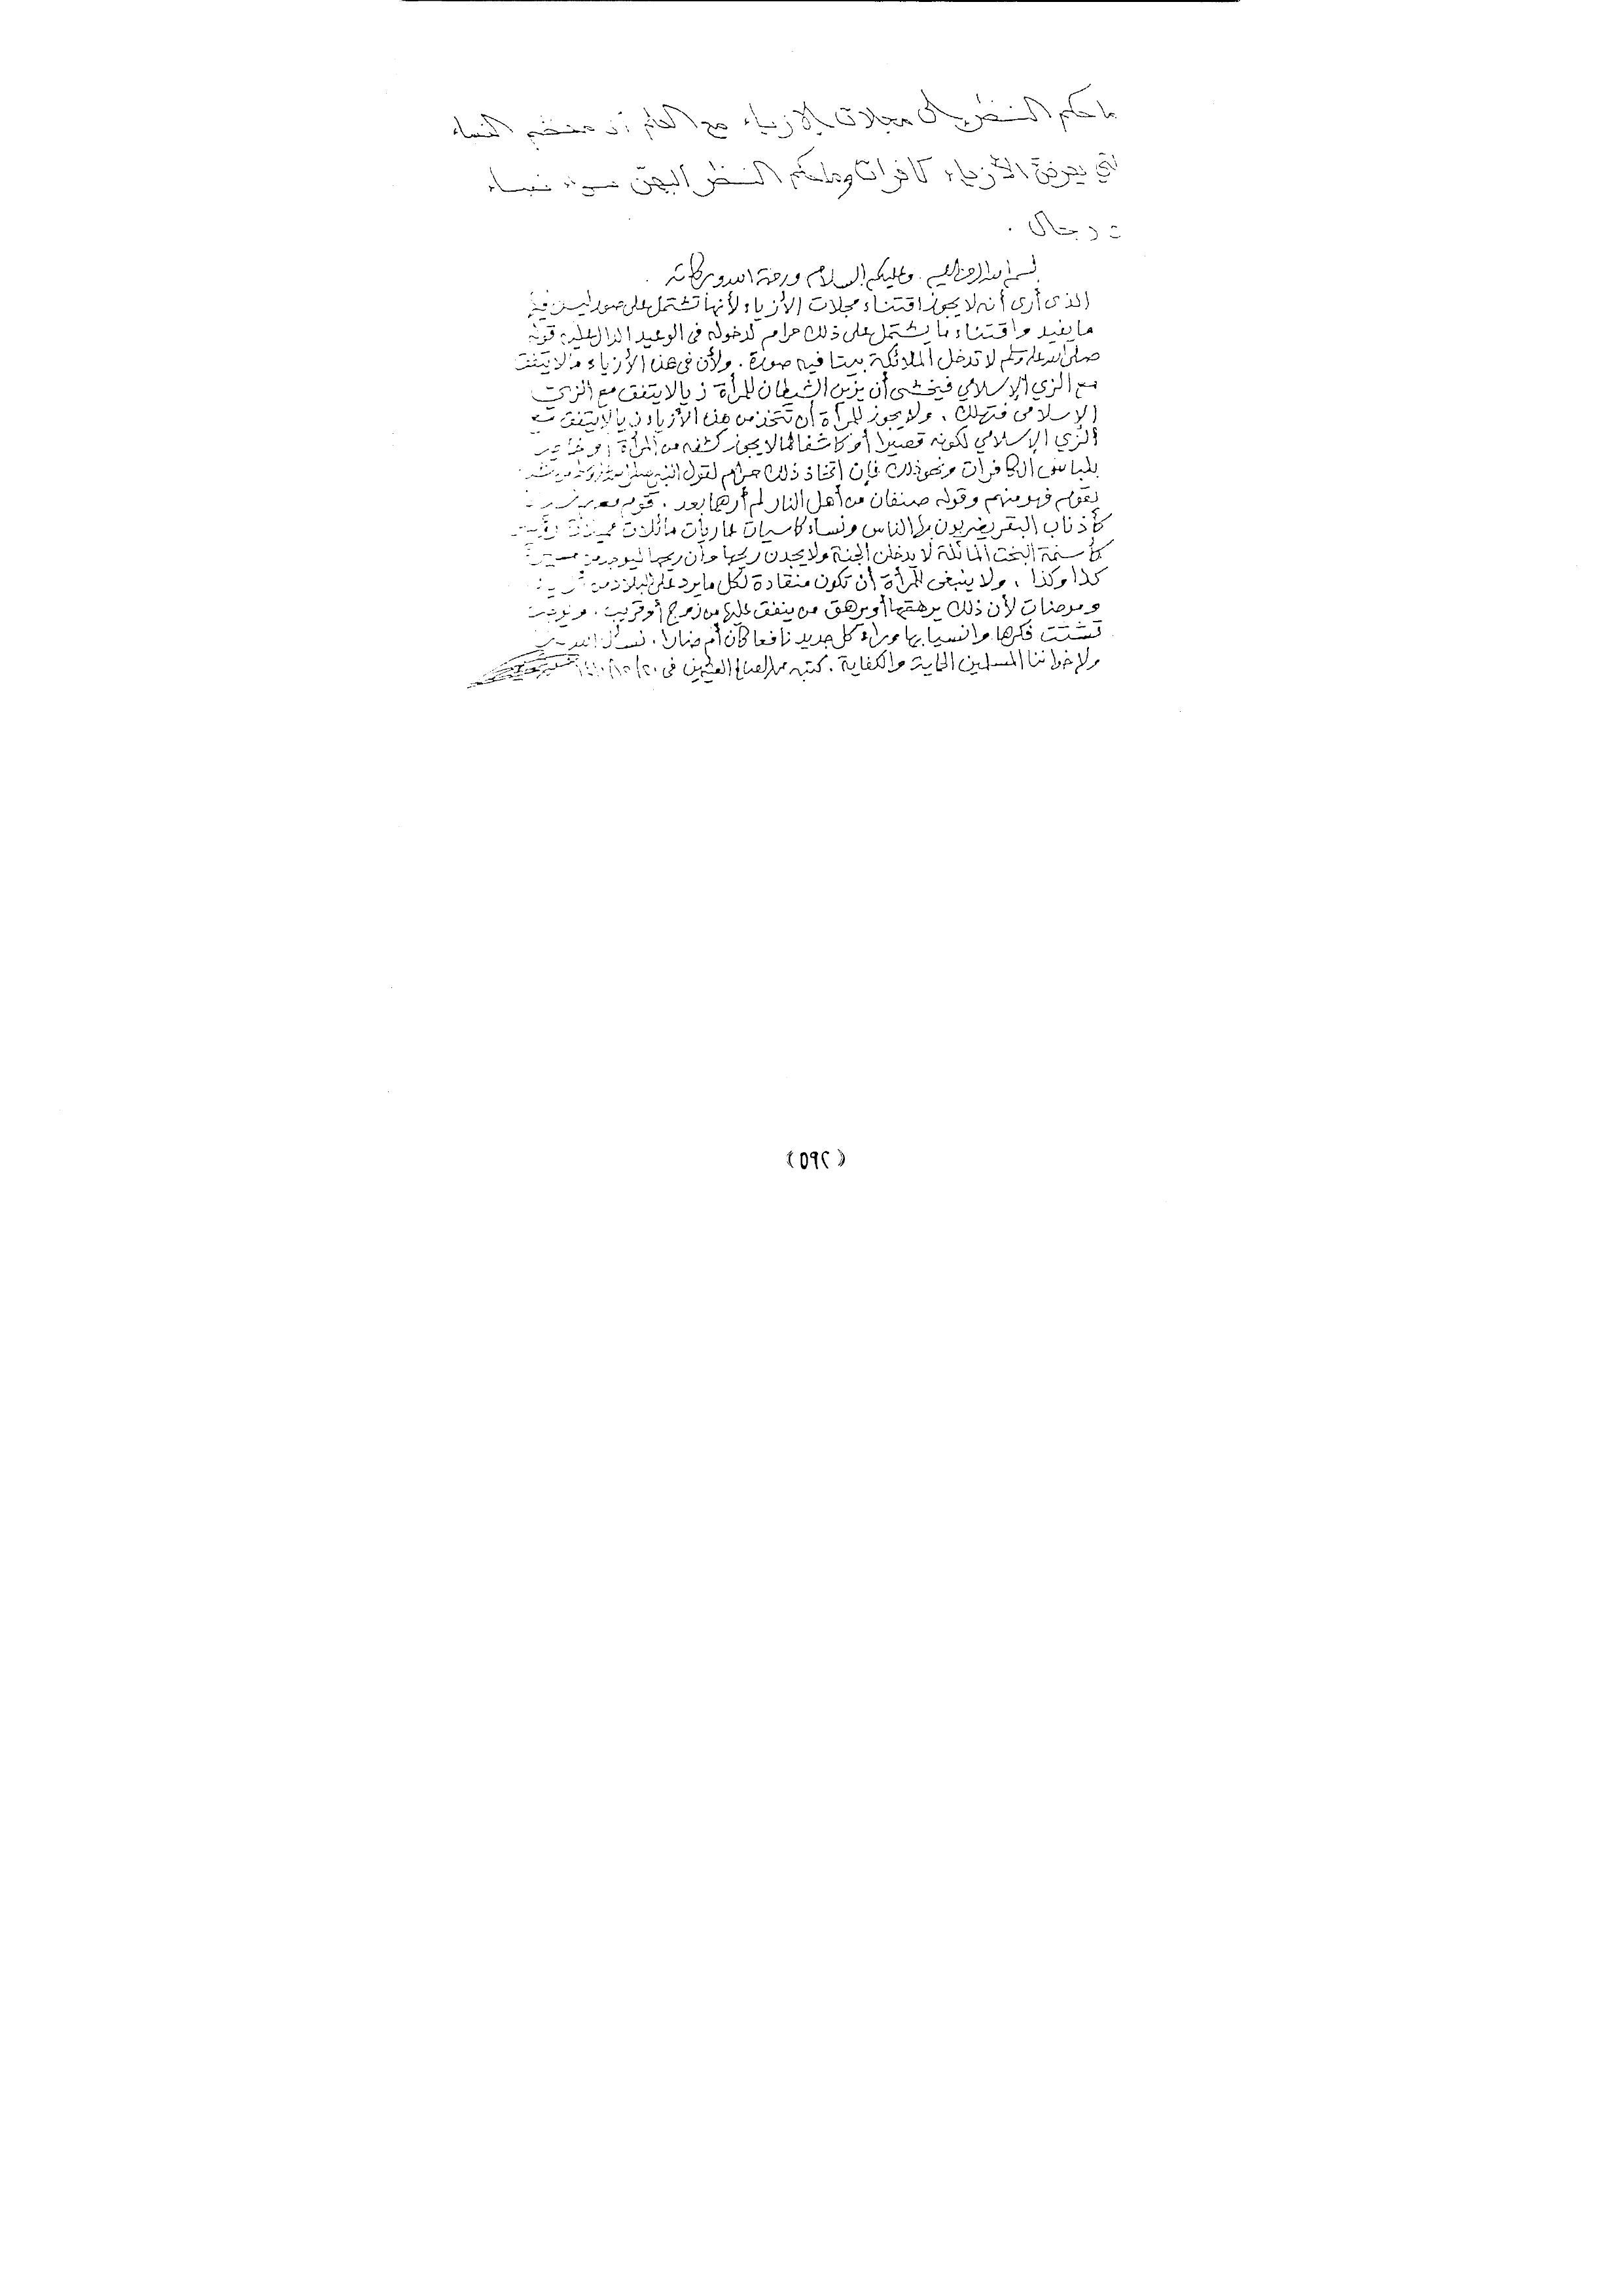 ما حكم النظر إلى مجلات الأزياء مع العلم أن معظم النساء
التي يعرضن الأزياء كافرات وما حكم النظر إليهن سواء نساء
رجال .
بسم الله الرحمن الرحيم . وعليكم السلام ورحمة الله وبركاته
الذى أرى أنه لا يجوز اقتناء مجلات الأزياء لأنها تشتمل على صور ليس فيها
ما يفيد واقتناء ما يشتمل على ذلك حرام لدخوله فى الوعيد الدال عليه قوله
صلى الله عليه وسلم لا تدخل الملائكة بيتا فيه صورة . ولأن فى هذه الأزياء ما لا يتفق
مع الزي الإسلامي فيخشى أن يزين الشيطان للمرأة زيا لا يتفق مع الزي
الإسلامى فتهلك . ولا يجوز للمرأة أن تتخذ من هذه الأزياء زيا لا يتفق مع
الزي الإسلامي لكونه قصيرا أو كاشفا لما لا يجوز كشفه من المرأة أو
بلباس الكافرات ونحو ذلك فإن اتخاذ ذلك حرام لقول النبي صلى الله عليه وسلم من تشبه
بقوم فهو منهم وقوله صنفان من أهل النار لم أرهما بعد . قوم معهم
كأذناب البقر يضربون بها الناس ونساء كاسيات عاريات مائلات مميلات
كأسنمة البخت المائلة لا يدخلن الجنة ولا يجدن ريحها وأن ريحها ليوجد من مسيرة
كذا وكذا . ولا ينبغى للمرأة أن تكون منقادة لكل ما يرد على البلاد من
وموضات لأن ذلك يرهقها أو يرهق من ينفق عليها من زوج أو قريب .
تشتت فكرها وانسيابها وراء كل جديد نافعا كان أم ضارا . نسأل الله
ولإخواننا المسلمين الحماية والكفاية . كتبه محمد الصالح العثيمين فى
(٥٩٢)